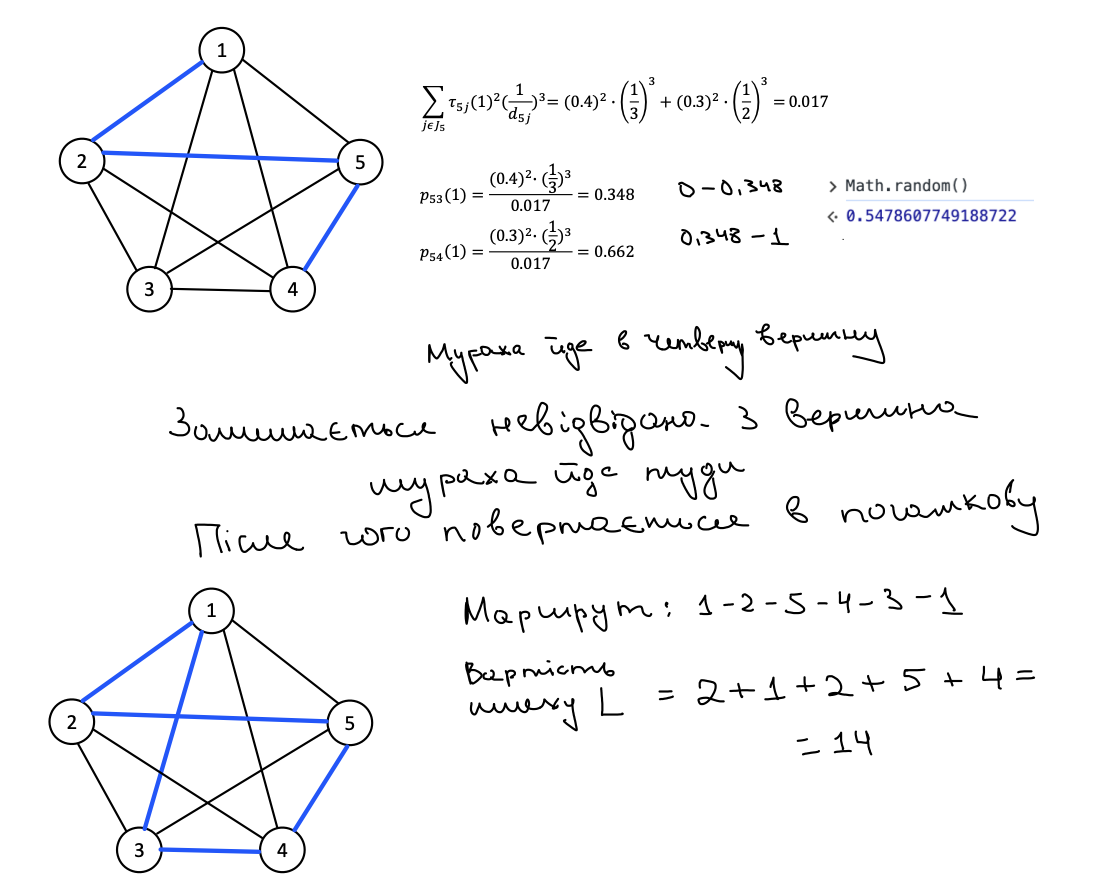 1
2
5
3
4
∑_{jϵJ₅} τ₅ⱼ(1)²(1/d₅ⱼ)³= (0.4)² · (1/3)³ + (0.3)² · (1/2)³ = 0.017
p₅₃(1) = (0.4)²· (1/3)³ / 0.017 = 0.348
0 - 0,348
> Math.random()
<· 0.5478607749188722
p₅₄(1) = (0.3)²· (1/2)³ / 0.017 = 0.662
0,348 - 1
Мураха йде в четверту вершину
Залишається невідвідано- 3 вершина
мураха йде туди
Після чого повертається в початкову
1
2
5
3
4
Маршрут: 1 - 2 - 5 - 4 - 3 - 1
Вартість
шляху L = 2 + 1 + 2 + 5 + 4 =
= 14